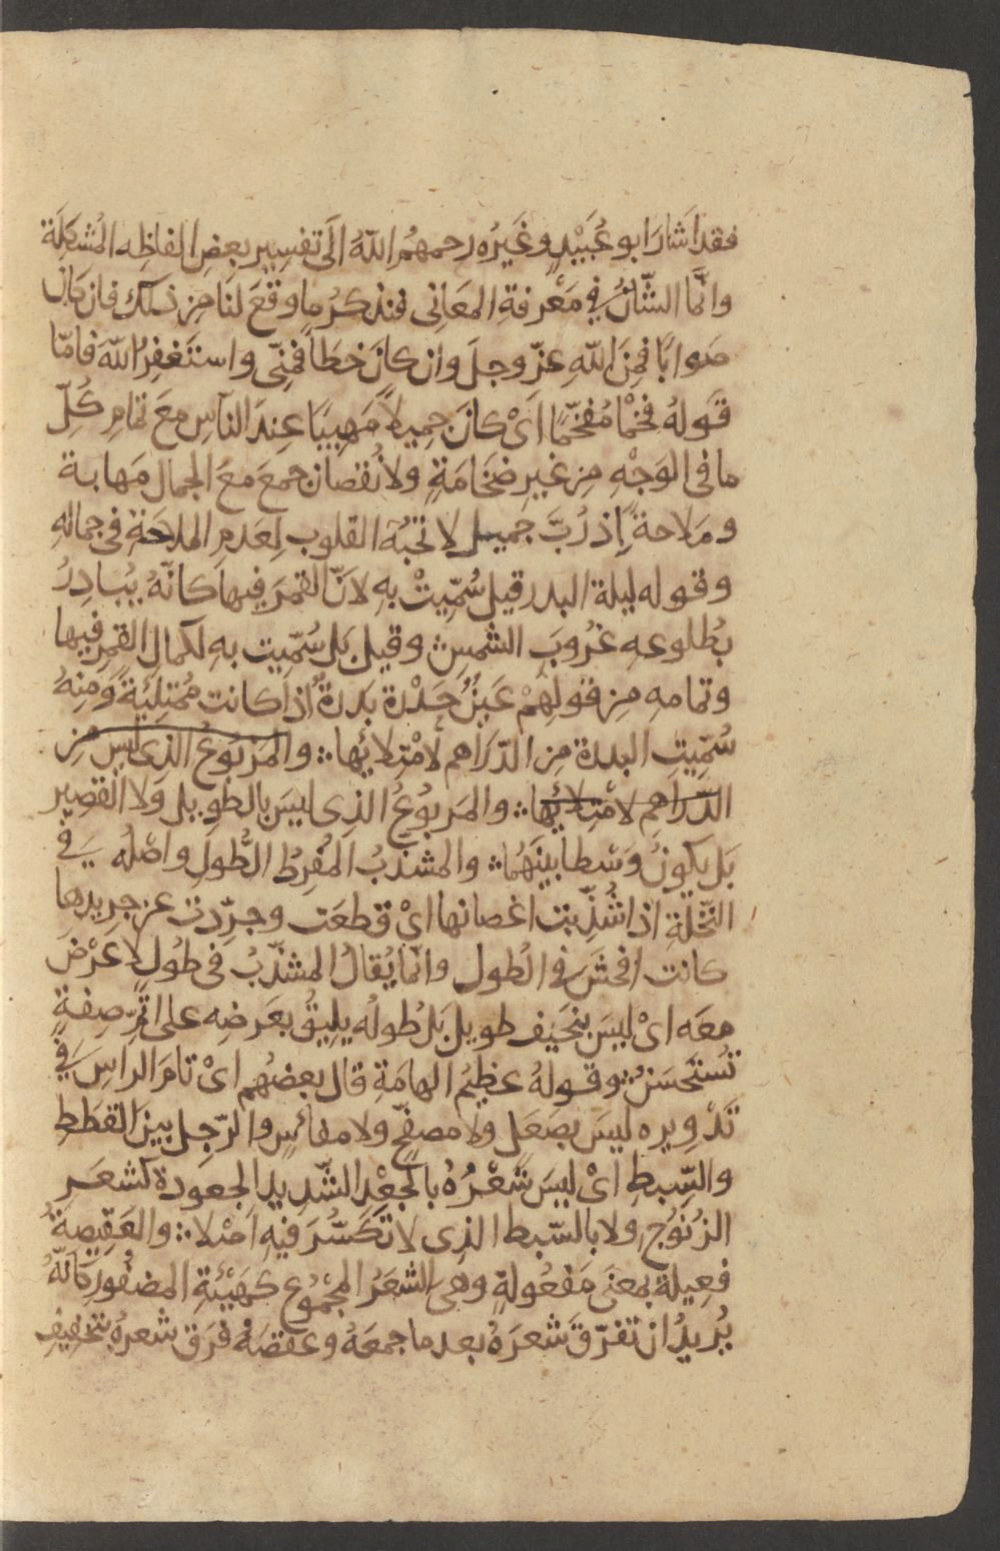 فقد اَشارَ ابو عُبَيْدٍ وغَيرُه رحمهمُ اللّهُ الَى تفسِير بعضِ الفاظِه المُشكِلَة
وانَّما الشّأنُ في مَعْرفةِ المعَانى فنذكرُ ما وقعَ لنَا مِن ذلك فان كان
صَوابًا فمِنَ اللّهِ عزّ وجلَ وان كانَ خطَاً فمِنّى واستَغفِرُ اللّهَ فامّا
قَولهُ فخْما مُفخّمًا اَىْ كانَ جمِيلاً مَهِيبًا عِندَ الناسِ معَ تمامِ كُلِّ
ما فى الوَجْهِ مِن غيرِ ضخَامَةٍ ولا نُقصان جمعَ معَ الجمال مَهابة
ومَلاحةً اِذ رُبَّ جميل لا تحبُّه القلوب لِعَدمِ الملاحَةِ فى جمالهِ
وقوله ليلة البدر قيل سُمّيتْ بهِ لاَنّ القمَرَ فيها كانّهُ يُبَادِرُ
بُطلوعهِ غُروبَ الشمسِ ؞ وقيل بَل سُمّيت بهِ لكمالِ القمِر فيها
وتمامهِ مِن قولِهِمْ عَينٌ حَدْرة بَدرةٌ اذا كانت مُمتلِيةً وَمِنهُ
سُمّيتِ البدرة مِن الدّرَاهم لامْتِلايُها ؞ والمَربُوعُ الذى ليس من
الدّراهم لامْتِلايُها ؞ والمَربُوعُ الذِى ليسَ بالطوِيل ولا القصِير
بَل يكونُ وَسْطا بينَهُمَا ؞ والمشذبُ المُفرِطُ الطُّولِ واصْلُه في
النّخْلَةِ اذا شُذِّبت اغصانها اىْ قطعَت وجرّدت عن جريدِها
كانت افحَشَ في الطول وانّما يُقالُ المشذّبُ فى طُول لا عرْضَ
معَه اىْ ليسَ بنحَيف طويل بَل طولُه يليقُ بعَرضِه على اتمِّ صِفةٍ
تُستَحسَنُ ؞ وقولهُ عظِيُم الهامَةِ قال بعضُهم اىْ تامَ الراسِ في
تَدْوِيره ليسَ بصَعَل ولا مصفّح ولا مفاس والرّجِل بينَ القطَط
والسّبطِ اىْ ليسَ شَعْرُهُ بالجعْدِ الشّدِيدِ الجعودة كشعَرِ
الزُنوج ولا بالسّبط الذِى لا تكَسُّرَ فيهِ اَصْلا ؞ والعَقِيصةُ
فعِيلة بمعنَى مَفعُولةٍ وهِىَ الشعَرُ المجْمُوع كهَيْئَةِ المضفُورِ كانّهُ
يُرِيدُ ان تفرّقَ شعَرَهُ بعد ما جمعَهُ وعقصَهُ فرَق شعرهُ بتخفيفِ